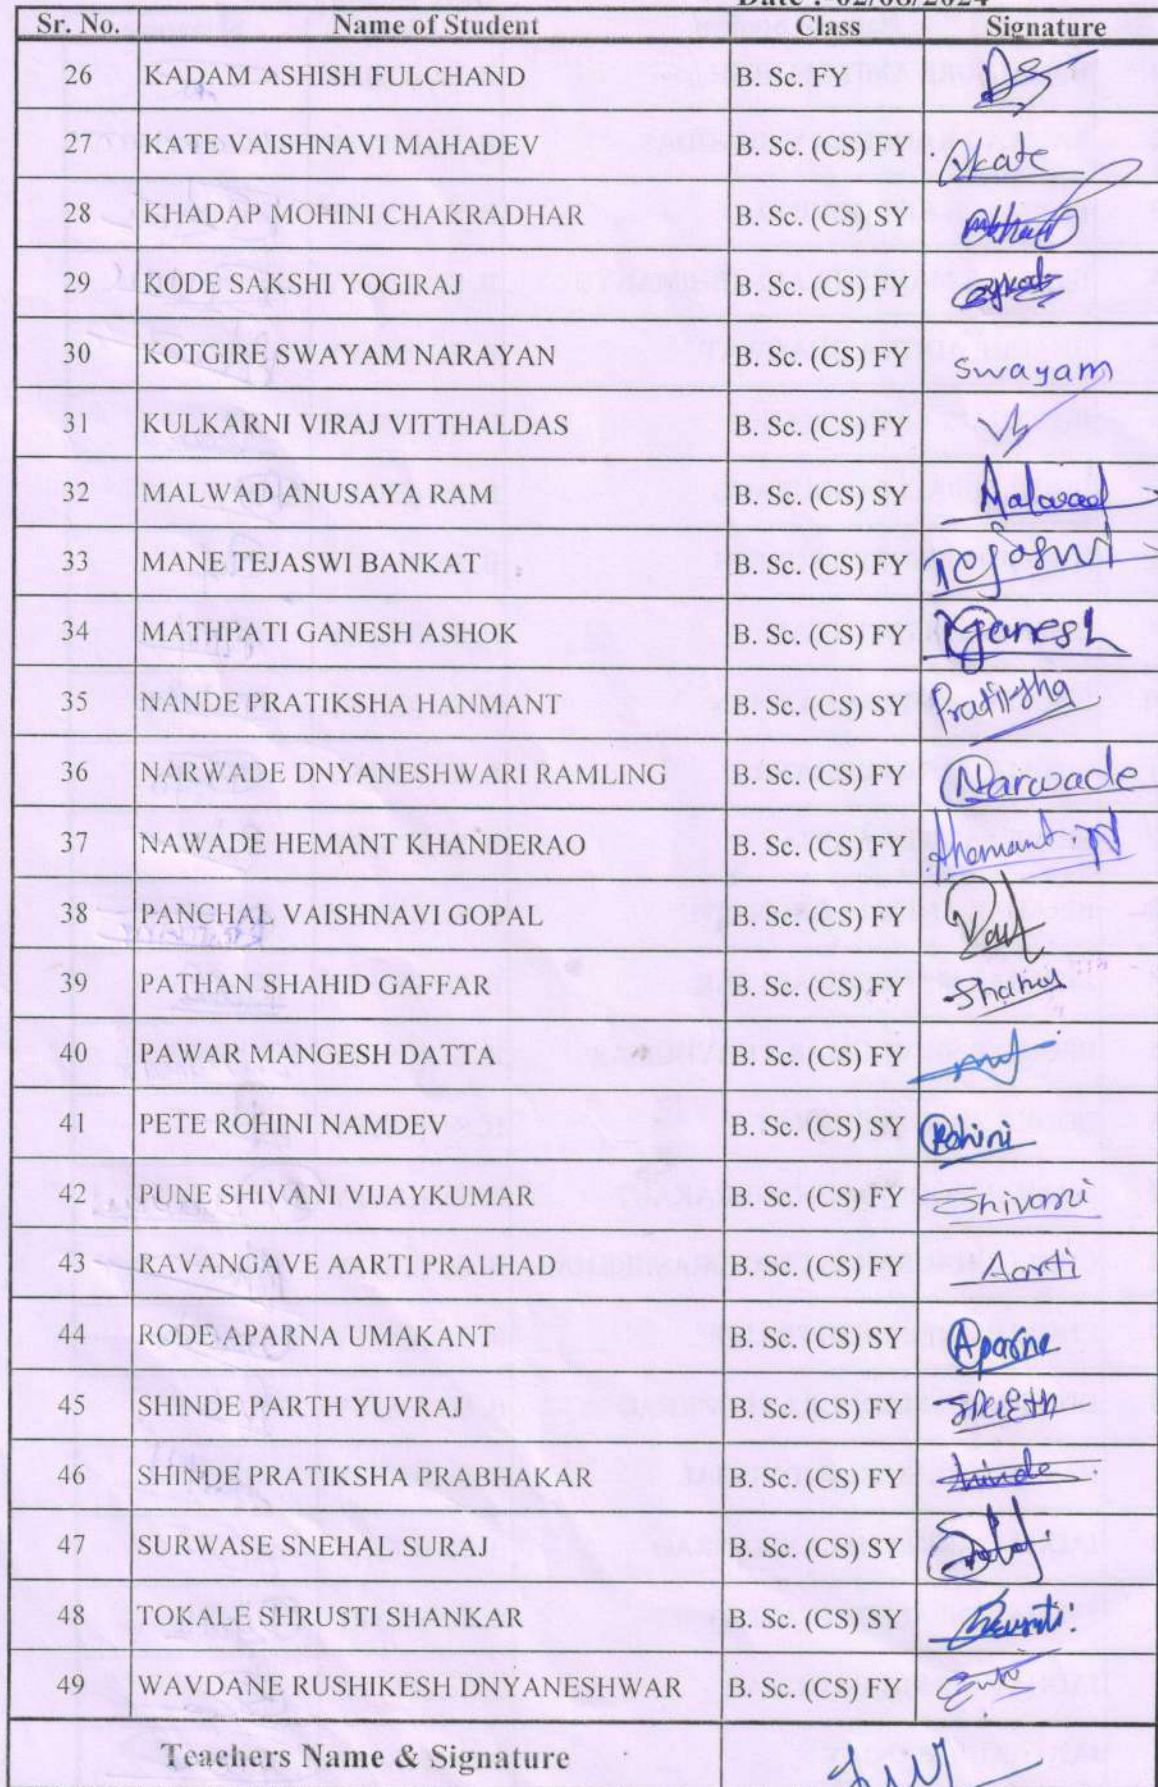 Date :- 02/08/2024
Sr. No. Name of Student Class Signature
26 KADAM ASHISH FULCHAND B. Sc. FY
27 KATE VAISHNAVI MAHADEV B. Sc. (CS) FY Vkate
28 KHADAP MOHINI CHAKRADHAR B. Sc. (CS) SY
29 KODE SAKSHI YOGIRAJ B. Sc. (CS) FY
30 KOTGIRE SWAYAM NARAYAN B. Sc. (CS) FY Swayam
31 KULKARNI VIRAJ VITTHALDAS B. Sc. (CS) FY
32 MALWAD ANUSAYA RAM B. Sc. (CS) SY Malwad
33 MANE TEJASWI BANKAT B. Sc. (CS) FY Tejaswi
34 MATHPATI GANESH ASHOK B. Sc. (CS) FY Ganesh
35 NANDE PRATIKSHA HANMANT B. Sc. (CS) SY Pratiksha
36 NARWADE DNYANESHWARI RAMLING B. Sc. (CS) FY Narwade
37 NAWADE HEMANT KHANDERAO B. Sc. (CS) FY
38 PANCHAL VAISHNAVI GOPAL B. Sc. (CS) FY
39 PATHAN SHAHID GAFFAR B. Sc. (CS) FY
40 PAWAR MANGESH DATTA B. Sc. (CS) FY
41 PETE ROHINI NAMDEV B. Sc. (CS) SY Rohini
42 PUNE SHIVANI VIJAYKUMAR B. Sc. (CS) FY Shivani
43 RAVANGAVE AARTI PRALHAD B. Sc. (CS) FY Aarti
44 RODE APARNA UMAKANT B. Sc. (CS) SY Aparna
45 SHINDE PARTH YUVRAJ B. Sc. (CS) FY
46 SHINDE PRATIKSHA PRABHAKAR B. Sc. (CS) FY
47 SURWASE SNEHAL SURAJ B. Sc. (CS) SY
48 TOKALE SHRUSTI SHANKAR B. Sc. (CS) SY
49 WAVDANE RUSHIKESH DNYANESHWAR B. Sc. (CS) FY
Teachers Name & Signature